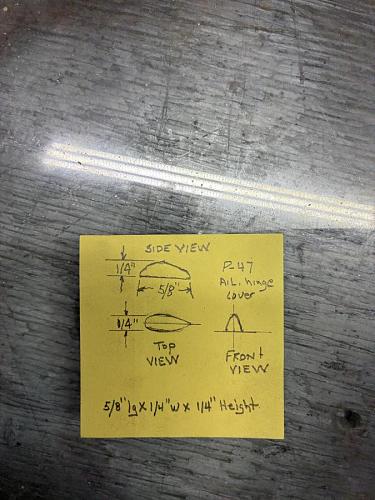 SIDE VIEW
1/4"
5/8"
P-47
AIL. hinge
cover
1/4"
TOP
VIEW
FRONT
VIEW
5/8" lg X 1/4" W X 1/4" Height